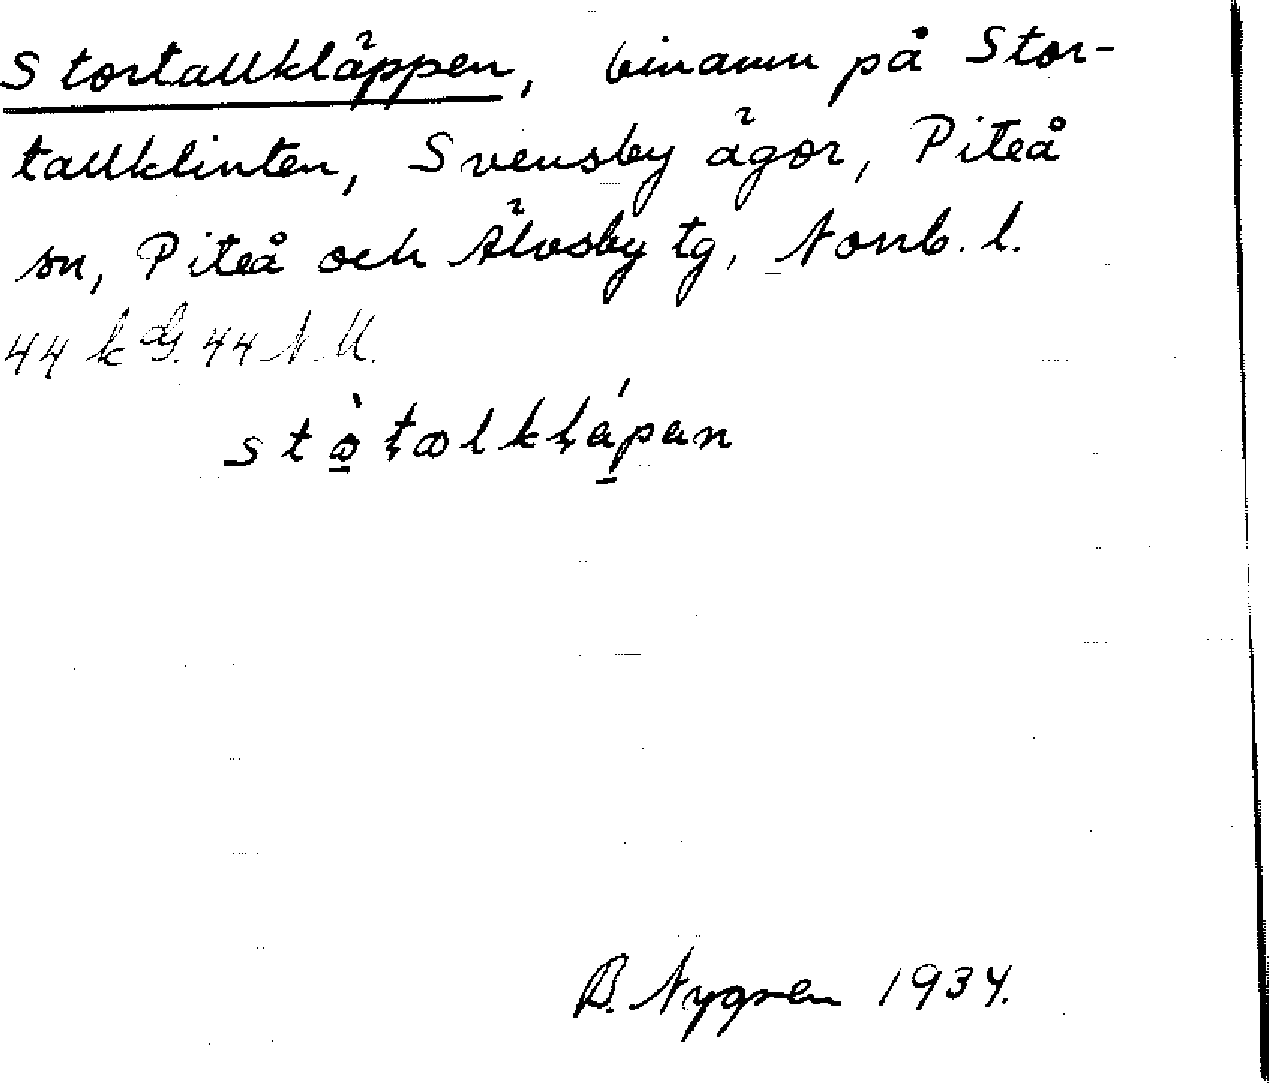 Stortallkläppen, binamn på Stor-
tallklinten, Svensby ägor, Piteå
sn, Piteå och Älvsby tg, Norrb. l.
44 N.U.
B. Nygren 1934.